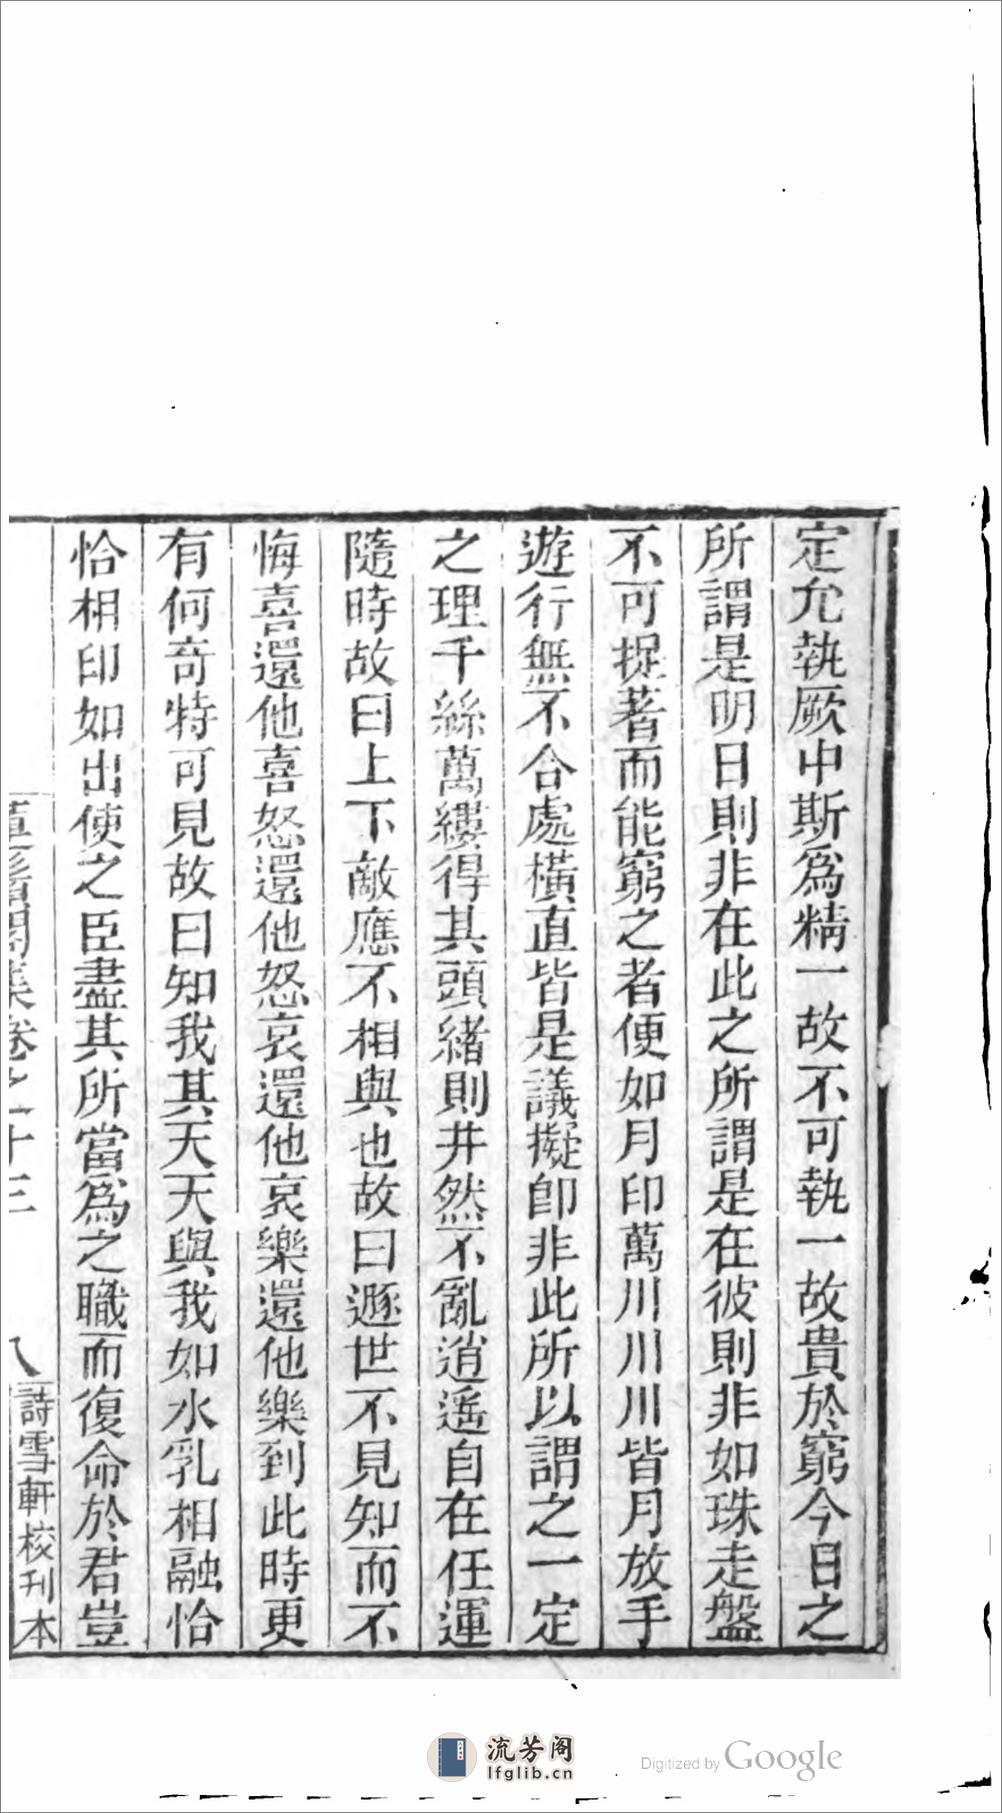 定允執厥中斯爲精一故不可執一故貴於窮今日之
所謂是明日則非在此之所謂是在彼則非如珠走盤
不可捉著而能窮之者便如月印萬川川川皆月放手
遊行無不合處橫直皆是議擬卽非此所以謂之一定
之理千絲萬縷得其頭緒則井然不亂逍遙自在任運
隨時故曰上下敵應不相與也故曰遯世不見知而不
悔喜還他喜怒還他怒哀還他哀樂還他樂到此時更
有何奇特可見故曰知我其天天與我如水乳相融恰
恰相印如出使之臣盡其所當爲之職而復命於君豈
集卷之十三
八
詩雪軒校刊本
流芳阁
lfglib.cn
Digitized by Google